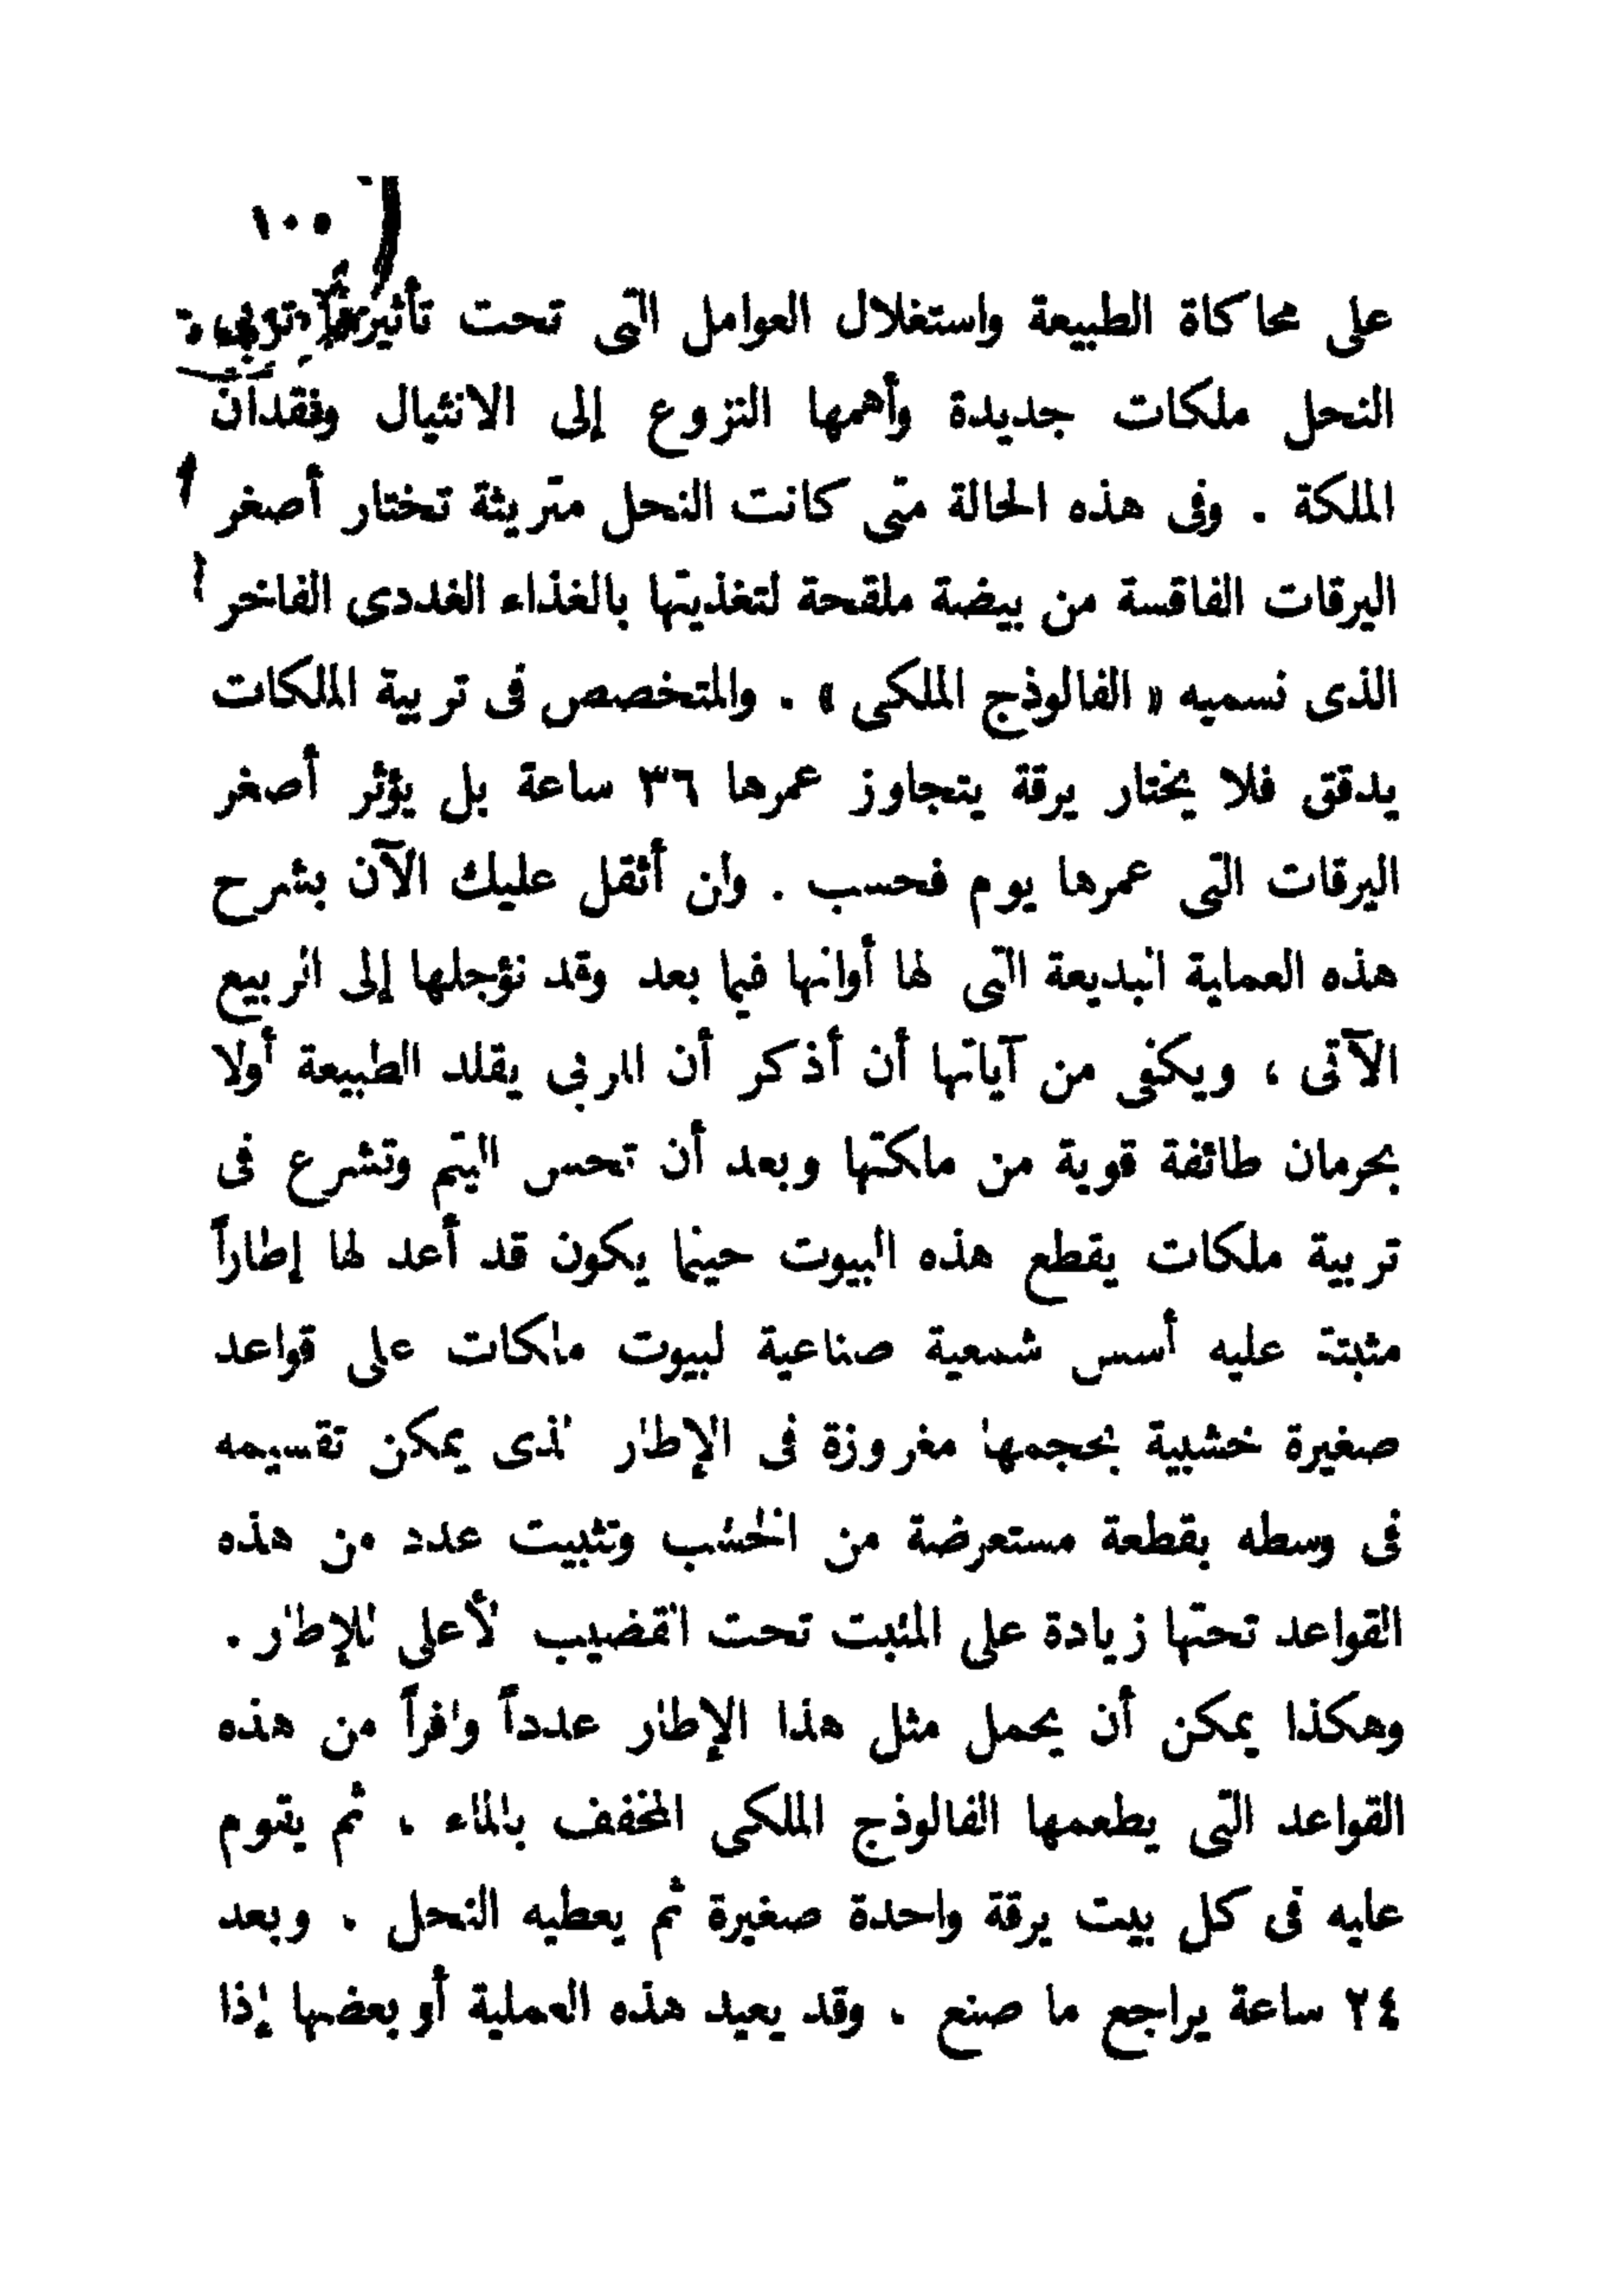 ١٠٥
على محاكاة الطبيعة واستغلال العوامل التى تحت تأثيرها تربى
النحل ملكات جديدة وأهمها النزوع إلى الانثيال وفقدان
الملكة . وفى هذه الحالة متى كانت النحل متريثة تختار أصغر
اليرقات الفاقسة من بيضة ملقحة لتغذيتها بالغذاء الغددى الفاخر
الذى نسميه « الفالوذج الملكى » . والمتخصص فى تربية الملكات
يدقق فلا يختار يرقة يتجاوز عمرها ٣٦ ساعة بل يؤثر أصغر
اليرقات التى عمرها يوم فحسب . ولن أثقل عليك الآن بشرح
هذه العملية البديعة التى لها أوانها فيما بعد وقد نؤجلها إلى الربيع
الآتى ، ويكفى من آياتها أن أذكر أن المربى يقلد الطبيعة أولا
بحرمان طائفة قوية من ملكتها وبعد أن تحس اليتم وتشرع فى
تربية ملكات يقطع هذه البيوت حينما يكون قد أعد لها إطاراً
مثبتة عليه أسس شمعية صناعية لبيوت ملكات على قواعد
صغيرة خشبية بحجمها مغروزة فى الإطار الذى يمكن تقسيمه
فى وسطه بقطعة مستعرضة من الخشب وتثبيت عدد من هذه
القواعد تحتها زيادة على المثبت تحت القضيب الأعلى للإطار .
وهكذا يمكن أن يحمل مثل هذا الإطار عدداً وافراً من هذه
القواعد التى يطعمها الفالوذج الملكى المخفف بالماء ، ثم يقوم
عليه فى كل بيت يرقة واحدة صغيرة ثم يعطيه النحل . وبعد
٢٤ ساعة يراجع ما صنع . وقد يعيد هذه العملية أو بعضها إذا